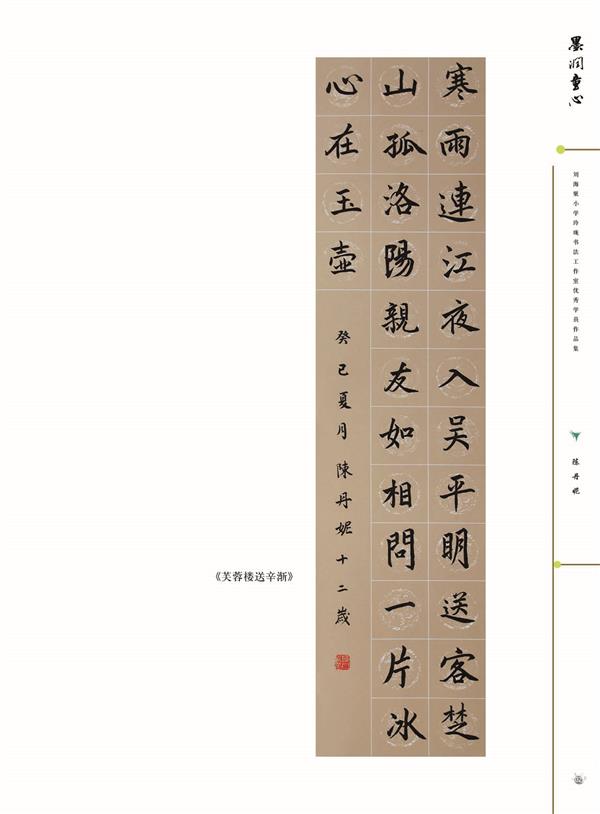 墨润童心
刘海粟小学玲珑书法工作室优秀学员作品集
陈丹妮
寒雨連江夜入吴平明送客楚
山孤洛陽親友如相問一片冰
心在玉壺
癸巳夏月 陳丹妮十二歲
《芙蓉楼送辛渐》